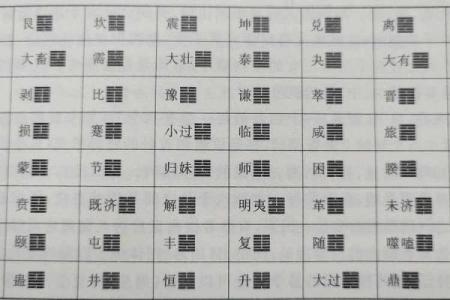 艮 坎 震 坤 兑 离
大畜 需 大壮 泰 夬 大有
剥 比 豫 谦 萃 晋
损 蹇 小过 临 咸 旅
蒙 节 归妹 师 困 睽
贲 既济 解 明夷 革 未济
颐 屯 丰 复 随 噬嗑
蛊 井 恒 升 大过 鼎